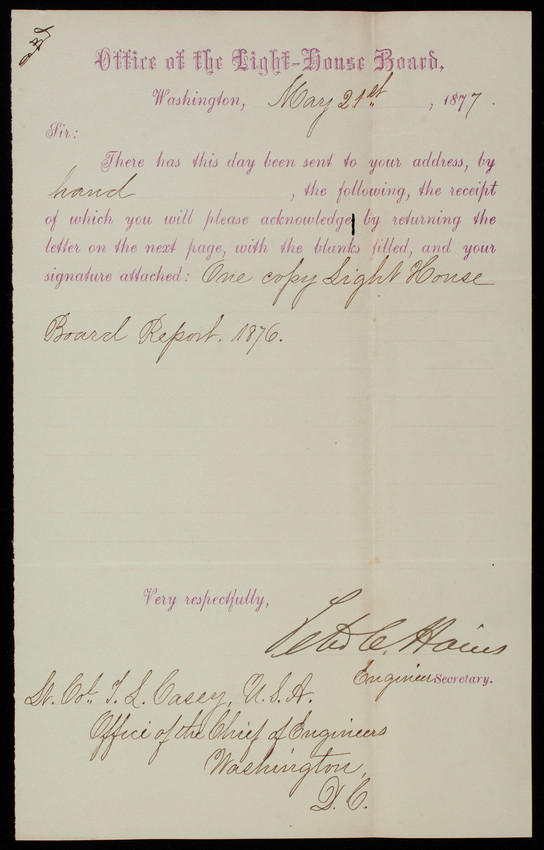 Office of the Light-House Board,
Washington, May 21st, 1877.
Sir:
There has this day been sent to your address, by
hand, the following, the receipt
of which you will please acknowledge by returning the
letter on the next page, with the blanks filled, and your
signature attached: One copy Light House
Board Report. 1876.
Very respectfully,
Peter C. Hains
Engineer Secretary.
Lt. Col. T. L. Casey, U.S.A.
Office of the Chief of Engineers
Washington,
D.C.